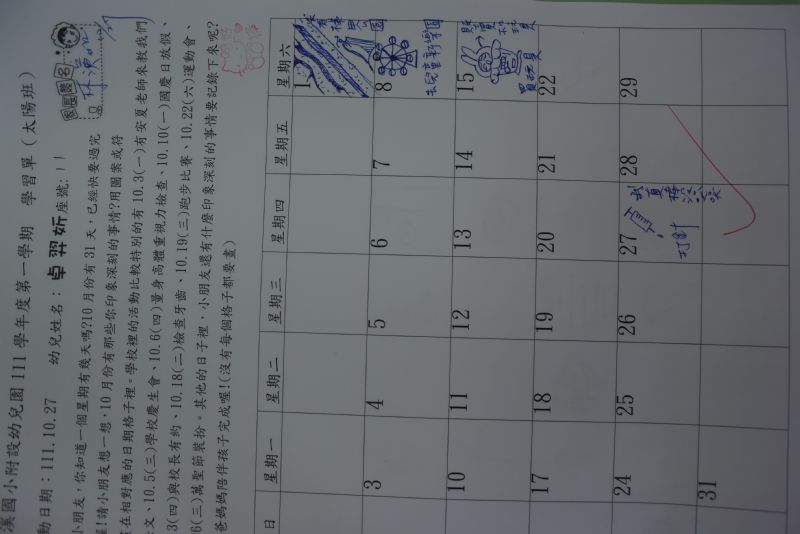 溪國小附設幼兒園 111 學年度第一學期 學習單（太陽班）
動日期：111.10.27 幼兒姓名：卓羿妡 座號:11
家長簽名
小朋友，你知道一個星期有幾天嗎?10 月份有 31 天，已經快要過完
喔!請小朋友想一想，10 月份有那些你印象深刻的事情?用圖案或符
在相對應的日期格子裡。學校裡的活動比較特別的有 10.3(一)有安夏老師來教我們
文、10.5(三)學校慶生會、10.6(四)量身高體重視力檢查、10.10(一)國慶日放假、
3(四)與校長有約、10.18(二)檢查牙齒、10.19(三)跑步比賽、10.22(六)運動會、
6(三)萬聖節裝扮。其他的日子裡，小朋友還有什麼印象深刻的事情要記錄下來呢?
爸媽媽陪伴孩子完成喔!(沒有每個格子都要畫)
日 星期一 星期二 星期三 星期四 星期五 星期六
1
3 4 5 6 7 8
去兒童新樂園
10 11 12 13 14 15
買玩具
17 18 19 20 21 22
24 25 26 27 28 29
打針
31